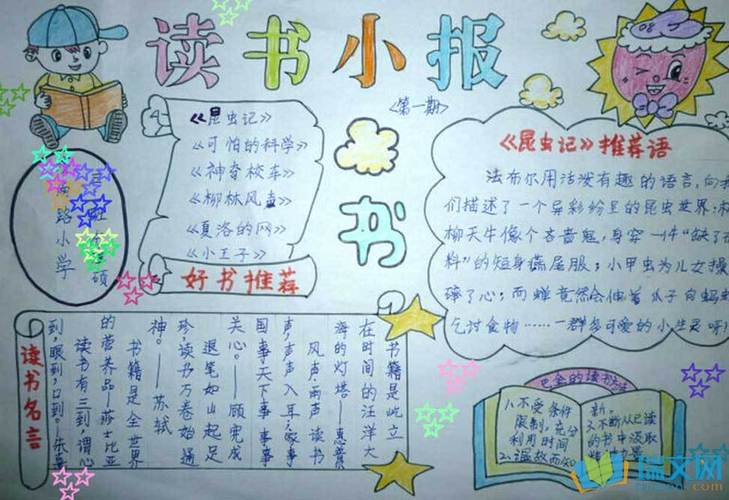 读书小报
<第一期>
《昆虫记》
《可怕的科学》
《神奇校车》
《柳林风声》
《夏洛的网》
《小王子》
好书推荐
路小学
硕
书
《昆虫记》推荐语
法布尔用活泼有趣的语言,向我
们描述了一个异彩纷呈的昆虫世界:
柳天牛像个吝啬鬼,身穿一件“缺了布
料”的短身燕尾服;小甲虫为儿女操
碎了心;而蝉竟然会伸着爪子向蚂蚁
乞讨食物……一群多可爱的小生灵呀!
读书名言
书籍是屹立
在时间的汪洋大
海的灯塔——惠普
风声雨声读书
声,声声入耳;家事
国事天下事事事
关心。——顾宪成
退笔如山起足
珍,读书万卷始通
神。——苏轼
书籍是全世界
的营养品——莎士比亚
读书有三到,谓心
到,眼到,口到。——朱熹
巴金的读书方法
1.不受条件
限制,充分
利用时间
2.温故而知
新。
3.不断从已读
的书中汲取
瑞文网